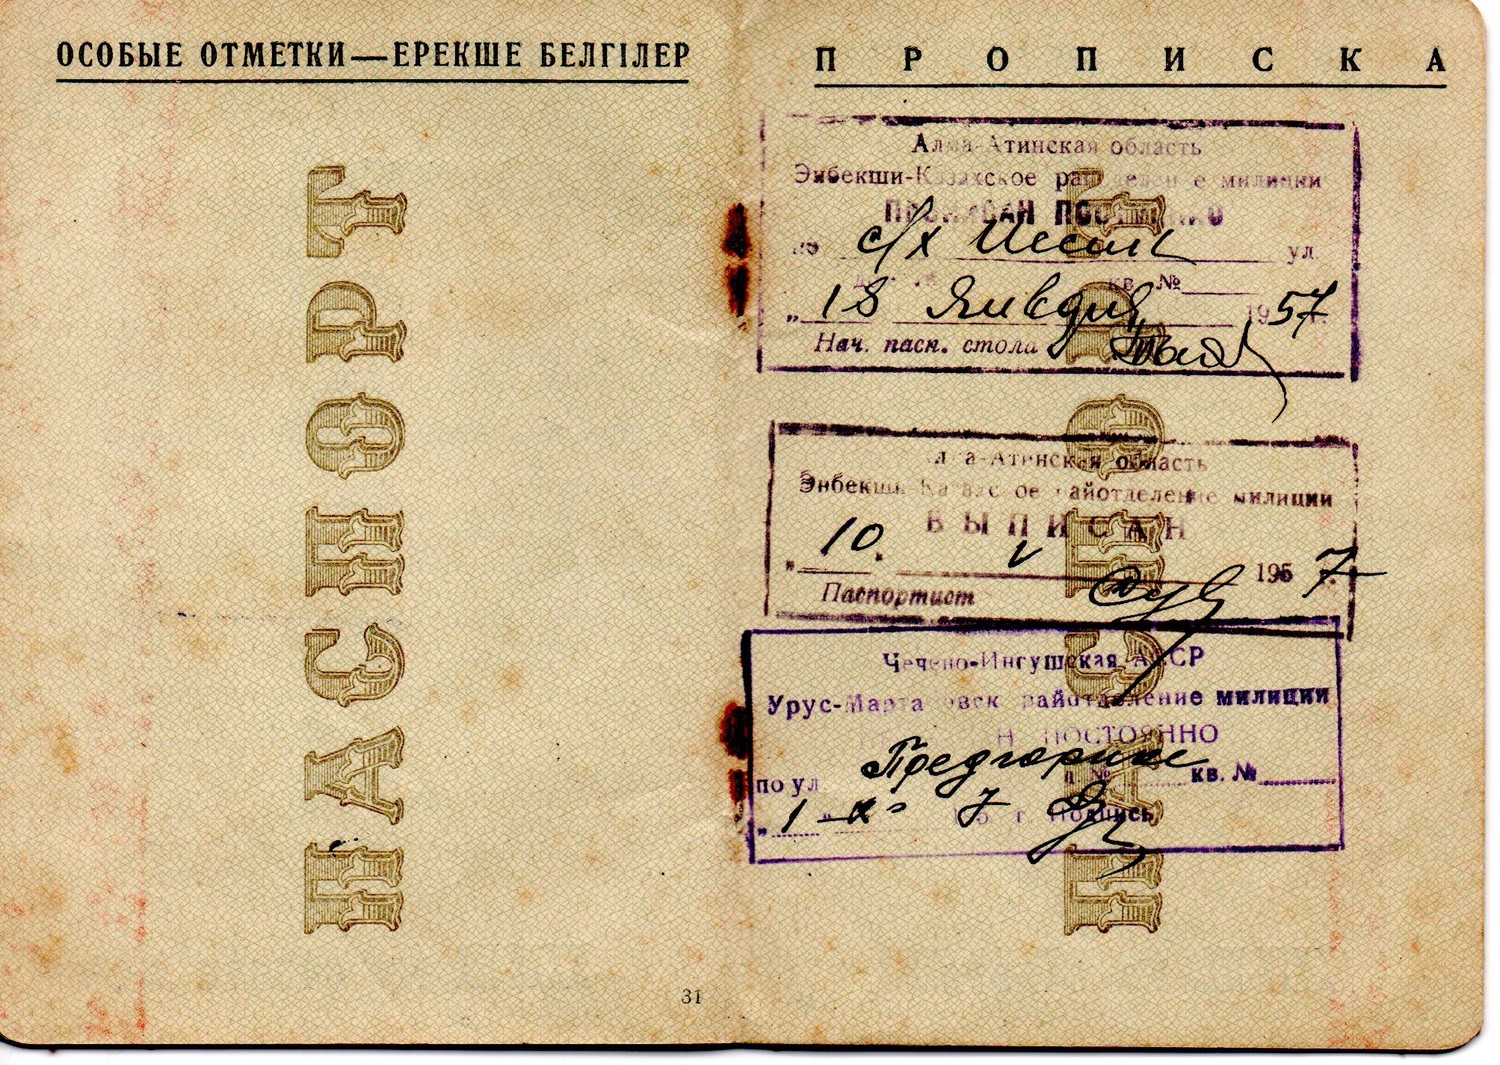 ОСОБЫЕ ОТМЕТКИ—ЕРЕКШЕ БЕЛГІЛЕР
ПАСПОРТ
31
ПРОПИСКА
ПАСПОРТ
Алма-Атинская область
Энбекши-Казахское райотделение милиции
ПРОПИСАН ПОСТОЯННО
по с/х Иссык ул.
кв. №
„ 18 Января 1957 г.
Нач. пасп. стола
Алма-Атинская область
Энбекши-Казахское райотделение милиции
ВЫПИСАН
„ 10 " V 1957 г.
Паспортист
Чечено-Ингушская АССР
Урус-Мартановск райотделение милиции
Н ПОСТОЯННО
Предгорное
по ул. д № кв. №
„ 1 " X 57 г. Подпись